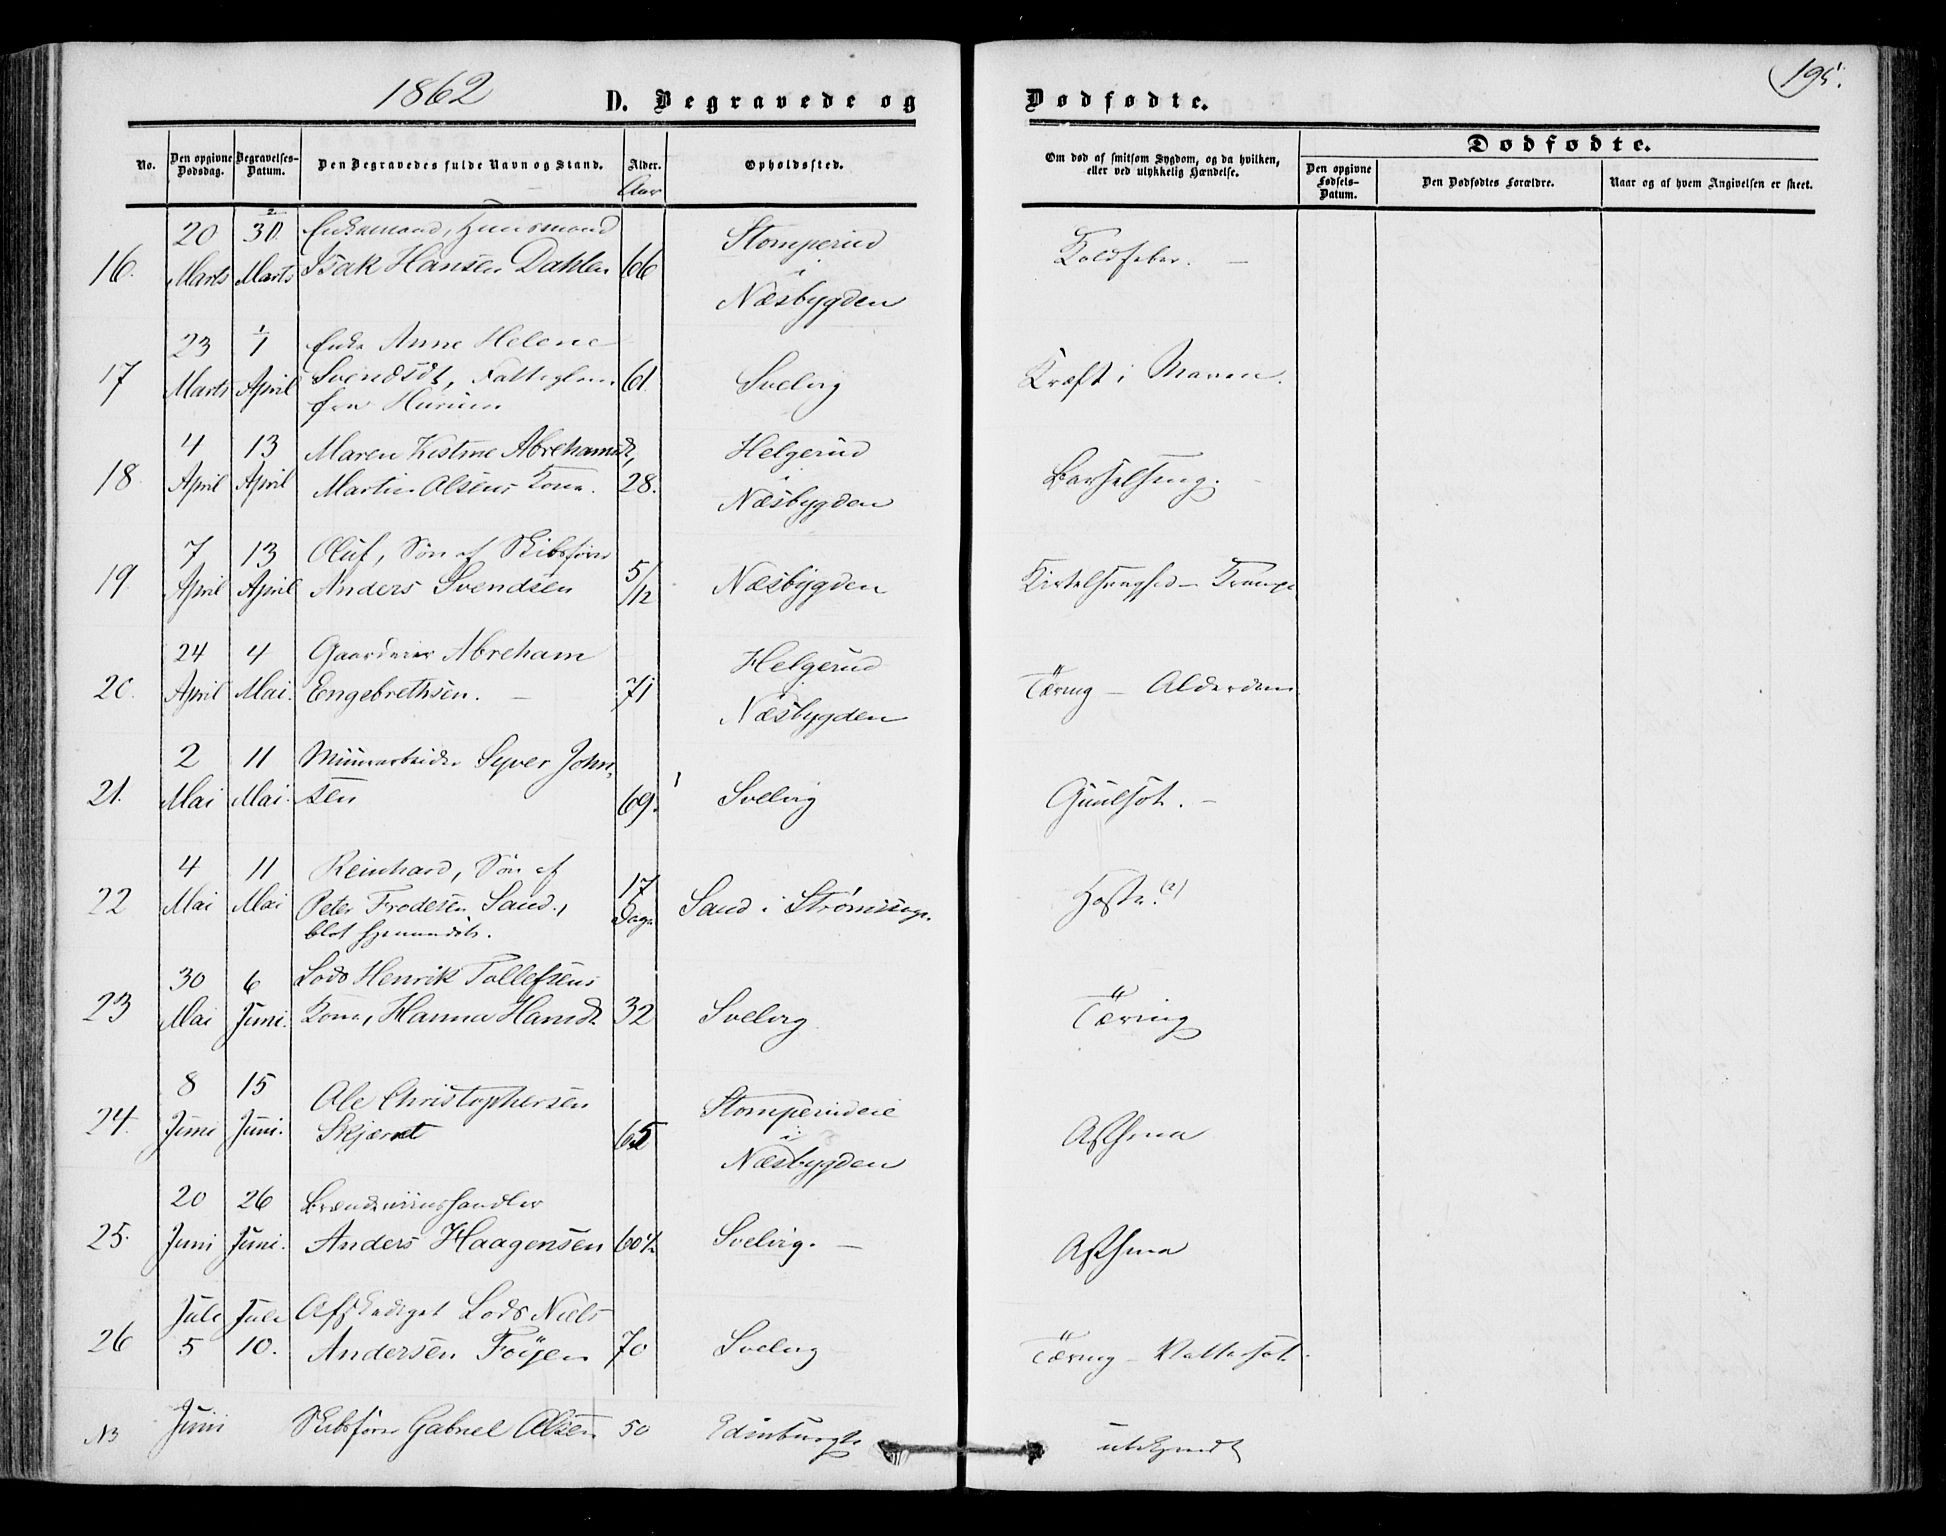 1862
D. Begravede og
Dødfødte.
195.
No.
Den opgivne Dødsdag.
Begravelses-Datum.
Den Begravedes fulde Navn og Stand.
Alder.
Aar
Opholdssted.
Om død af smitsom Sygdom, og da hvilken, eller ved ulykkelig Hændelse.
Dødfødte.
Den opgivne Fødsels-Datum.
Den Dødfødtes Forældre.
Naar og af hvem Angivelsen er skeet.
20 30 Enkemand, Huusmand Stomperud
16. Marts Marts Isak Hansen Dahlen 66 i Koldfeber. –
Næsbygden
23 1 Enke Anne Helene
17 Marts April Svendsdt, Fattiglem 61. Svelvig Kræft i Maven.
fra Hurum
4 13 Maren Kistine Abrehamsdt, Helgerud
18. April April Martin Olsens Kone. 28. i Barselseng.
Næsbygden
7 13 Oluf, Søn af Skibsfører
19. April April Anders Svendsen 5/12 Næsbygden Kirtelsvaghed – Krampe
24 4 Gaardeier Abreham Helgerud
20. April Mai. Engebrethsen. – 71 Næsbygden Tæring – Alderdom
2 11 Muurarbeider Syver John-
21. Mai Mai. sen 69. Svelvig Guulsot. –
4 11 Reinhard, Søn af
22 Mai Mai Peter Frodesen Sand, 17 Dage Sand i Strømm Hoste (?)
blot hjemmedøbt.
30 6 Lods Henrik Tollefsens
23 Mai Juni. Kone, Hanna Hansdt 32 Svelvig Tæring
8 15 Ole Christophersen Stomperudeie
24. Juni Juni. Skjæret 65 i Asthma
Næsbygden
20 26 Brændeviinshandler
25. Juni Juni. Anders Haagensen 60½ Svelvig. – Asthma
Juli Juli Afskediget Lods Niels
26 5 10. Andersen Föyen 70 Svelvig Tæring – Vattersot.
NB Juni Skibsfører Gabriel Olsen 50 Edinburgh udskyndt